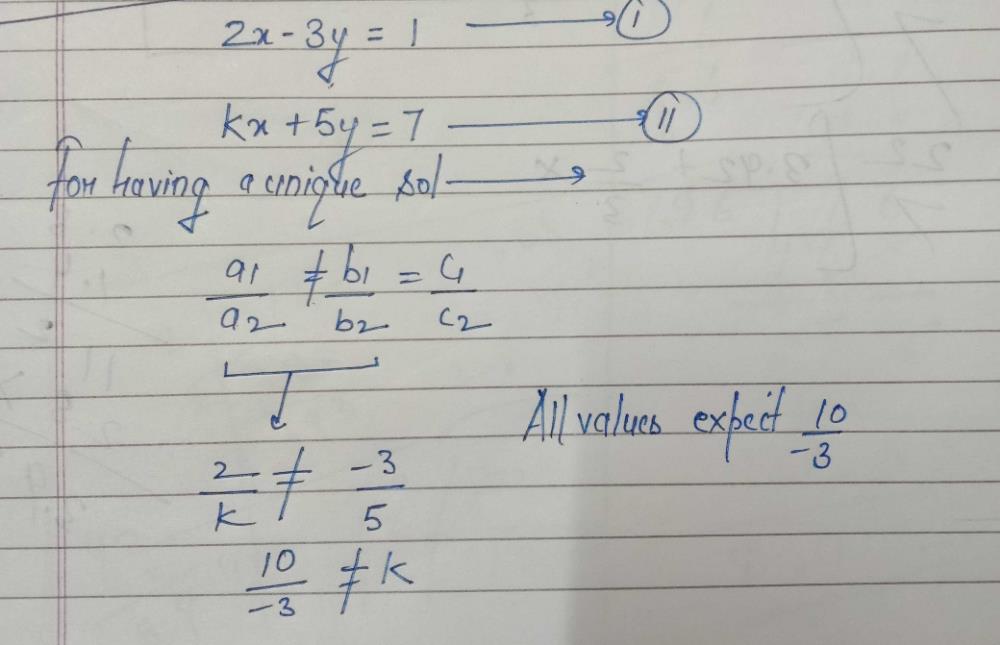 2x - 3y = 1 ⟶ (i)
kx + 5y = 7 ⟶ (ii)
for having a unique sol ⟶
a1/a2 ≠ b1/b2 = c1/c2
2/k ≠ -3/5
10/-3 ≠ k
All values expect 10/-3